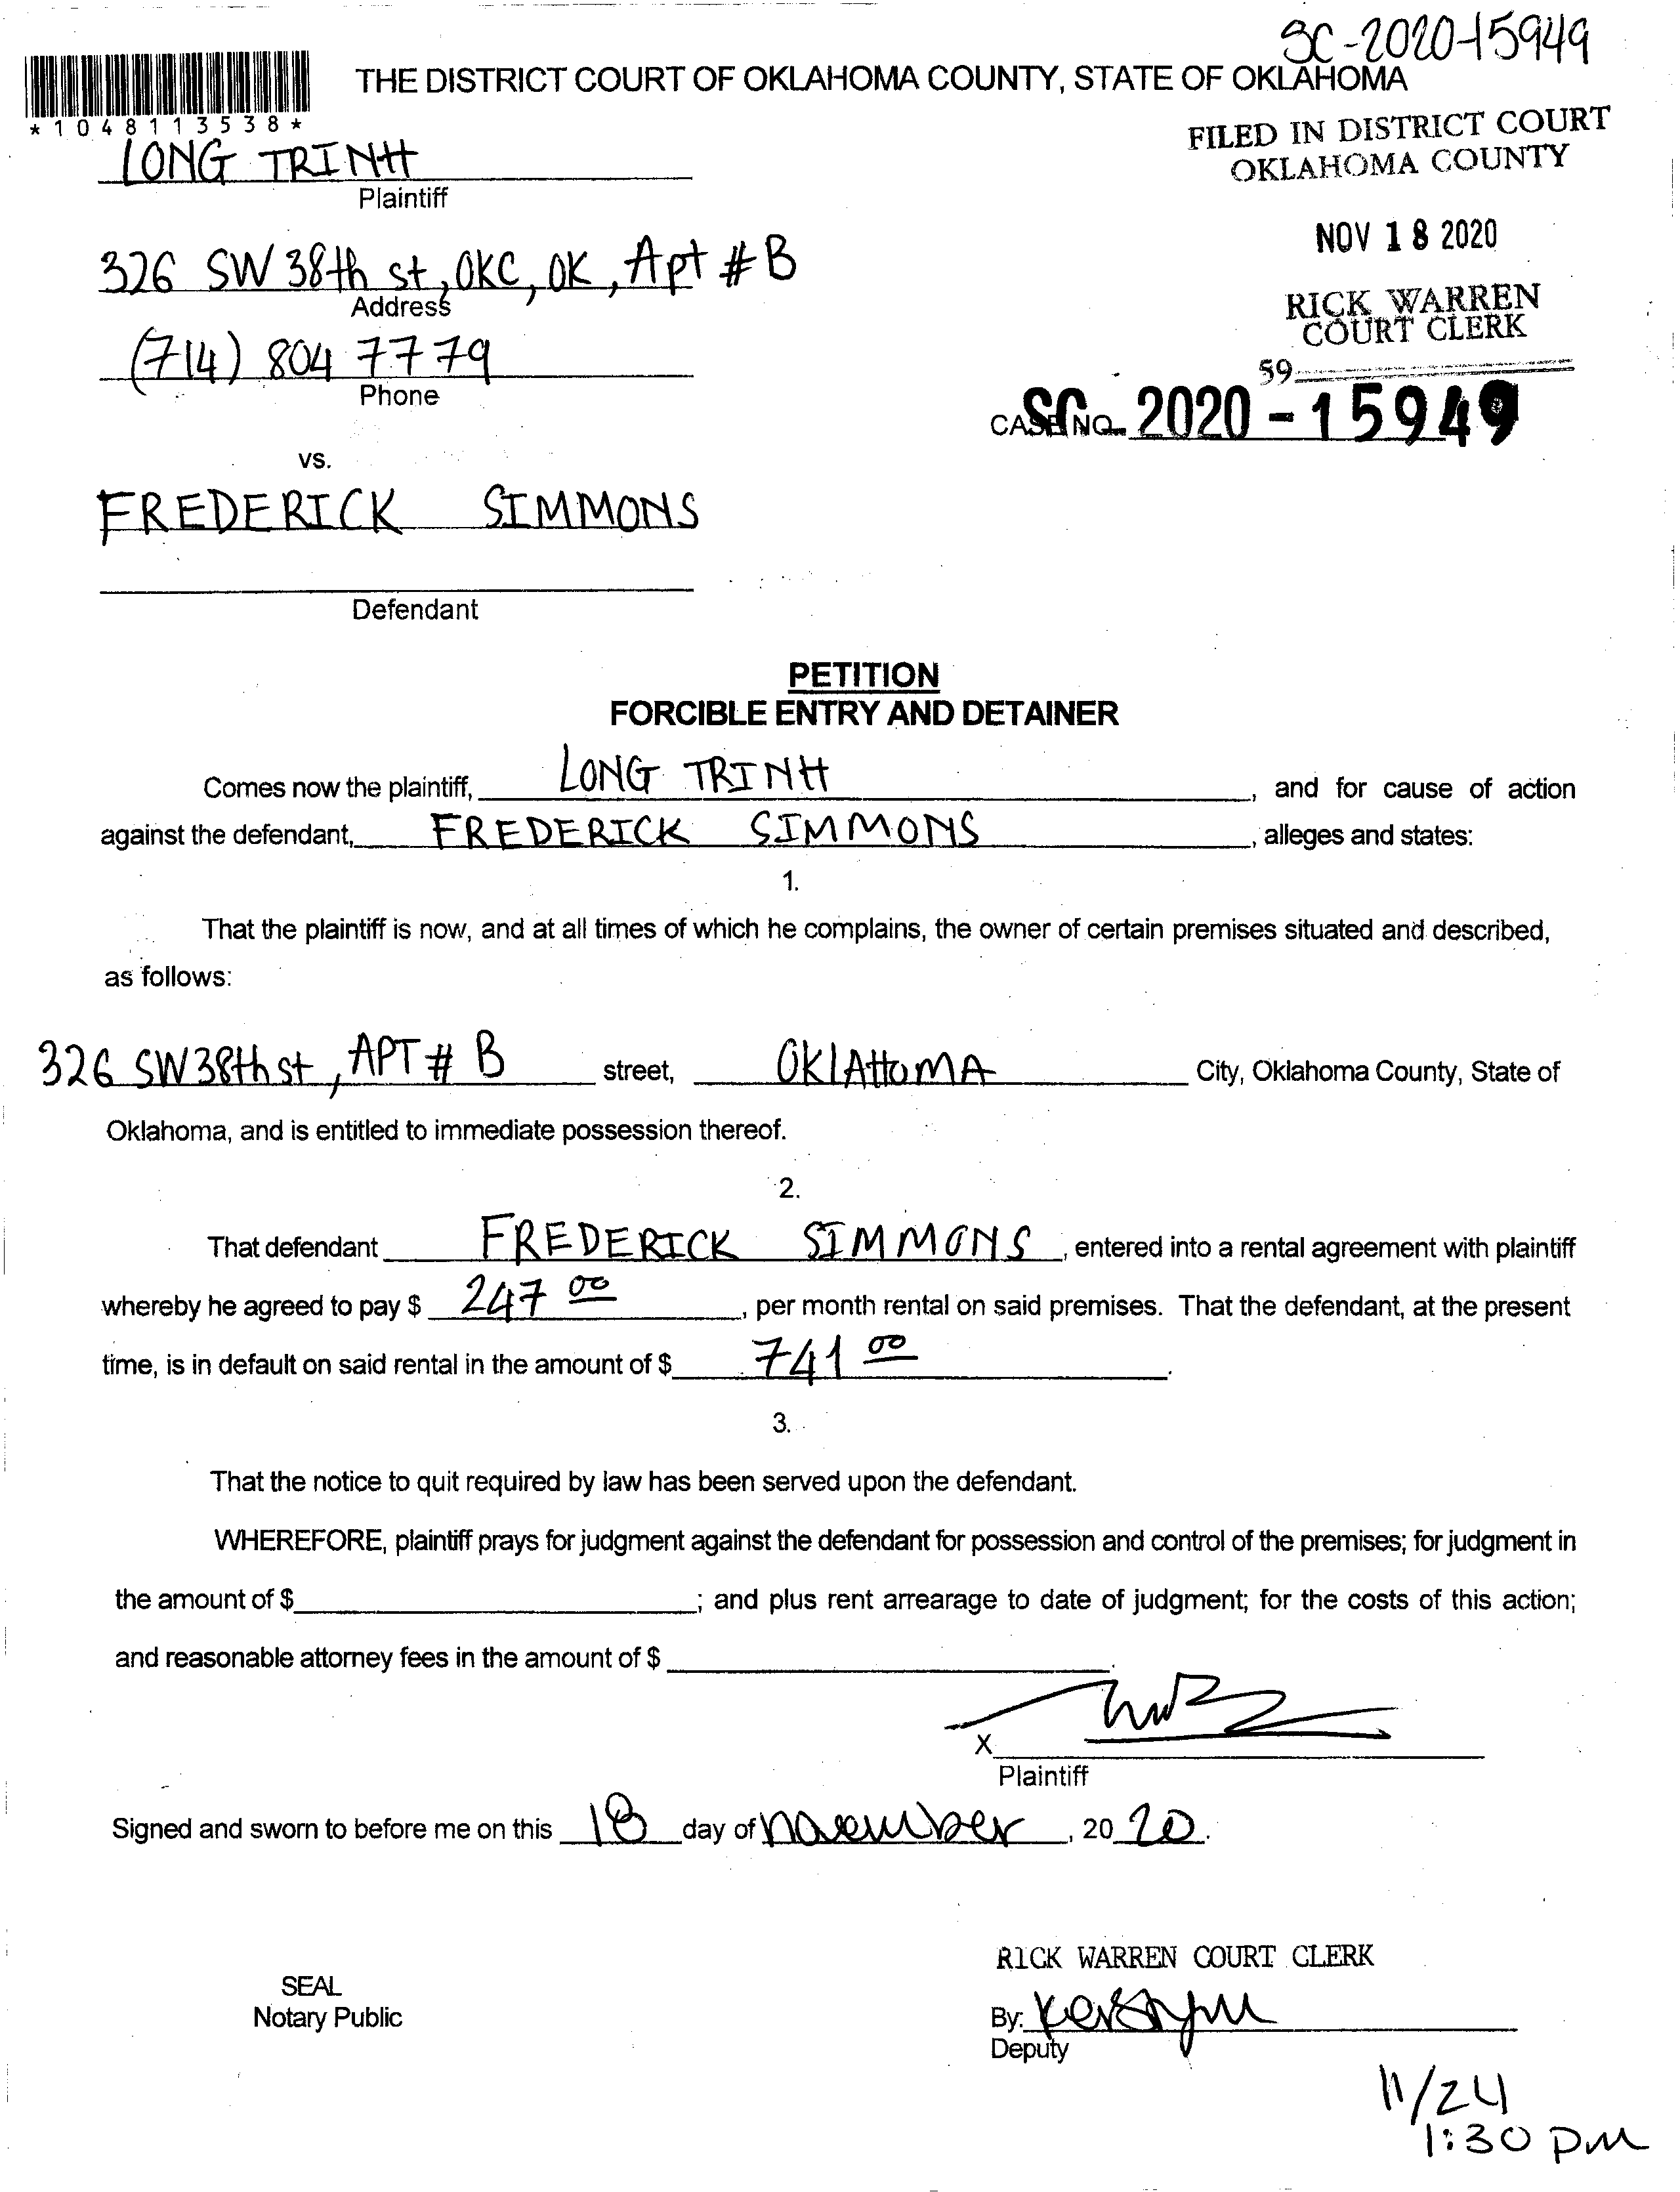 SC-2020-15949
THE DISTRICT COURT OF OKLAHOMA COUNTY, STATE OF OKLAHOMA
*1048113538*
FILED IN DISTRICT COURT
OKLAHOMA COUNTY
LONG TRINH
Plaintiff
NOV 18 2020
326 SW 38th st, OKC, OK, Apt #B
Address
RICK WARREN
COURT CLERK
(714) 804 7779
Phone
59
CASE NO. SC 2020-15949
vs.
FREDERICK SIMMONS
Defendant
PETITION
FORCIBLE ENTRY AND DETAINER
Comes now the plaintiff, LONG TRINH, and for cause of action
against the defendant, FREDERICK SIMMONS, alleges and states:
1.
That the plaintiff is now, and at all times of which he complains, the owner of certain premises situated and described,
as follows:
326 SW 38th st, APT # B street, OKLAHOMA City, Oklahoma County, State of
Oklahoma, and is entitled to immediate possession thereof.
2.
That defendant FREDERICK SIMMONS, entered into a rental agreement with plaintiff
whereby he agreed to pay $ 247 00, per month rental on said premises. That the defendant, at the present
time, is in default on said rental in the amount of $ 741 00.
3.
That the notice to quit required by law has been served upon the defendant.
WHEREFORE, plaintiff prays for judgment against the defendant for possession and control of the premises; for judgment in
the amount of $ ; and plus rent arrearage to date of judgment; for the costs of this action;
and reasonable attorney fees in the amount of $ .
X
Plaintiff
Signed and sworn to before me on this 18 day of november, 20 20.
RICK WARREN COURT CLERK
SEAL
Notary Public
By:
Deputy
11/24
1:30 PM